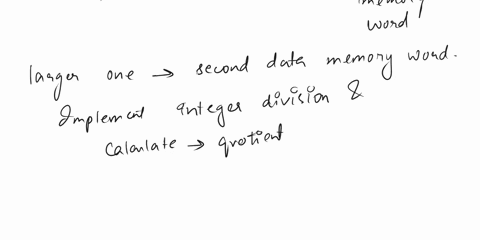 memory
word
larger one → second data memory word.
Implement integer division &
Calculate → quotient